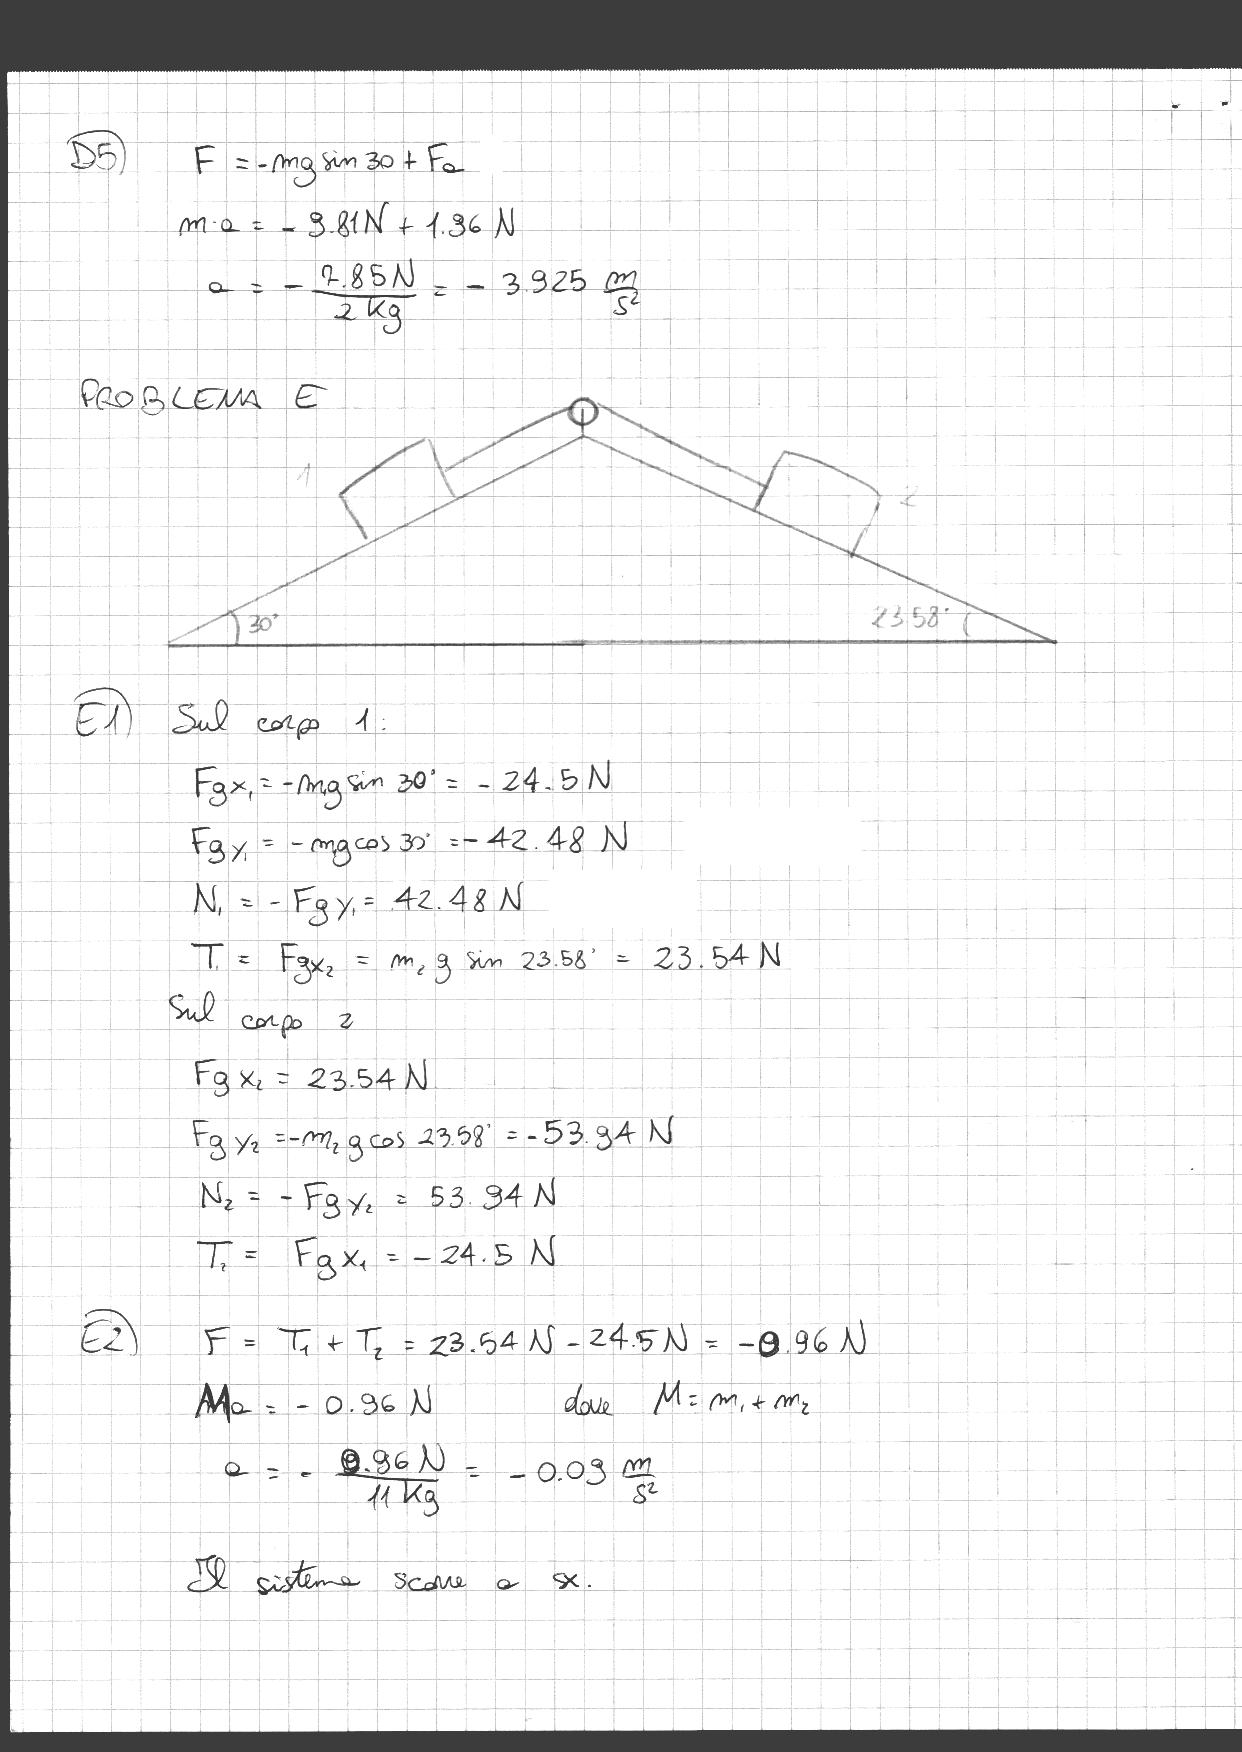 D5) F = -mg sin 30 + Fa
m·a = - 9.81N + 1.96 N
a = - 7.85 N / 2 Kg = - 3.925 m/s²
PROBLEMA E
1
2
30°
23.58°
E1) Sul corpo 1:
Fgx₁ = -m₁g sin 30° = - 24.5 N
Fgy₁ = - m₁g cos 30° = - 42.48 N
N₁ = - Fgy₁ = 42.48 N
T₁ = Fgx₂ = m₂ g sin 23.58° = 23.54 N
Sul corpo 2
Fgx₂ = 23.54 N
Fgy₂ = -m₂ g cos 23.58° = -53.94 N
N₂ = - Fgy₂ = 53.94 N
T₂ = Fgx₁ = - 24.5 N
E2) F = T₁ + T₂ = 23.54 N - 24.5 N = -0.96 N
Ma = - 0.96 N dove M = m₁ + m₂
a = - 0.96 N / 11 Kg = - 0.09 m/s²
Il sistema scorre a sx.